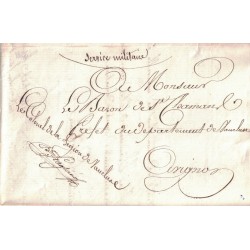 Service militaire
A Monsieur
Le Baron de St Chamans
Préfet du département de Vaucluse
Avignon
Le Colonel de la Légion de Vaucluse